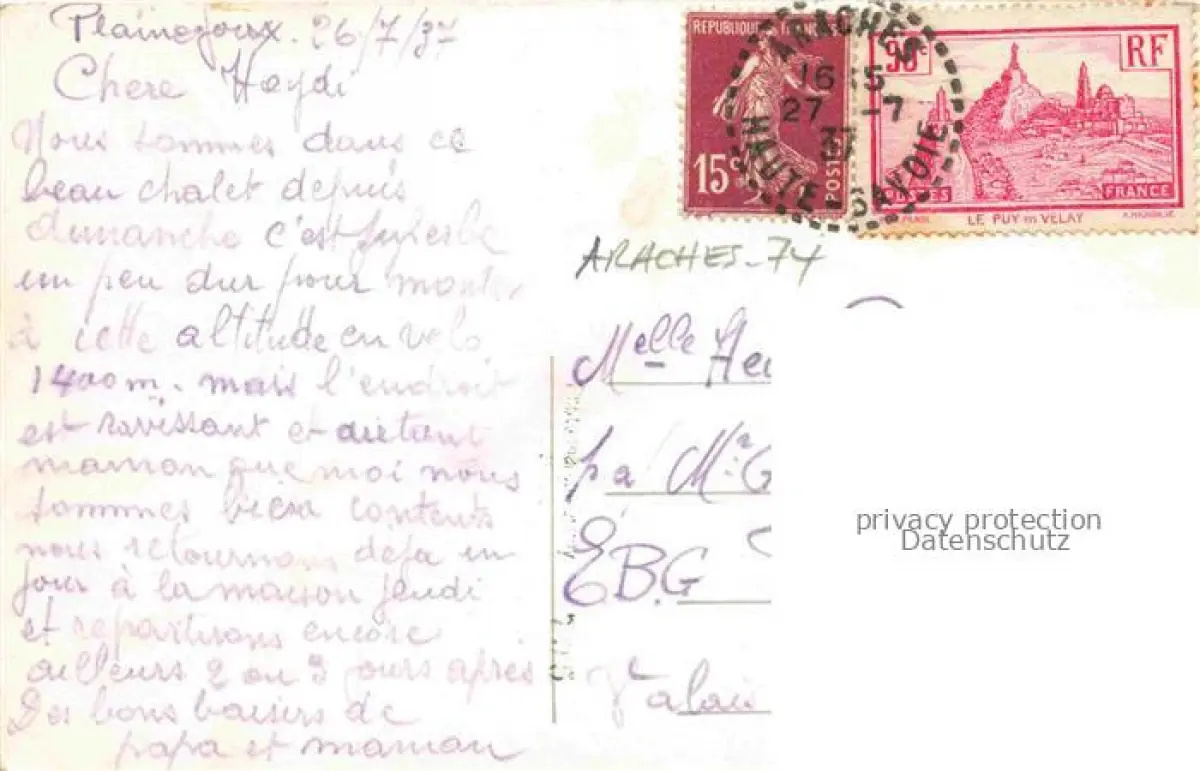 Plainejoux. 26/7/37
Chere Heydi
Nous sommes dans ce
beau chalet depuis
dimanche c'est
un peu dur pour monter
à cette altitude en velo
1400 m. mais l'endroit
est ravissant et
maman que moi nous
sommes bien contents
nous retournons deja un
jour à la maison jeudi
et repartirons encore
ailleurs 2 ou 3 jours après
des bons baisers de
papa et maman
REPUBLIQUE FRANÇAISE
15c
POSTES
90c
RF
POSTES FRANCE
LE PUY en VELAY
ARACHES
16 15
27 -7
37
HAUTE-SAVOIE
ARACHES-74
Melle
pa Mr G
E.B.G
Valais
privacy protection
Datenschutz